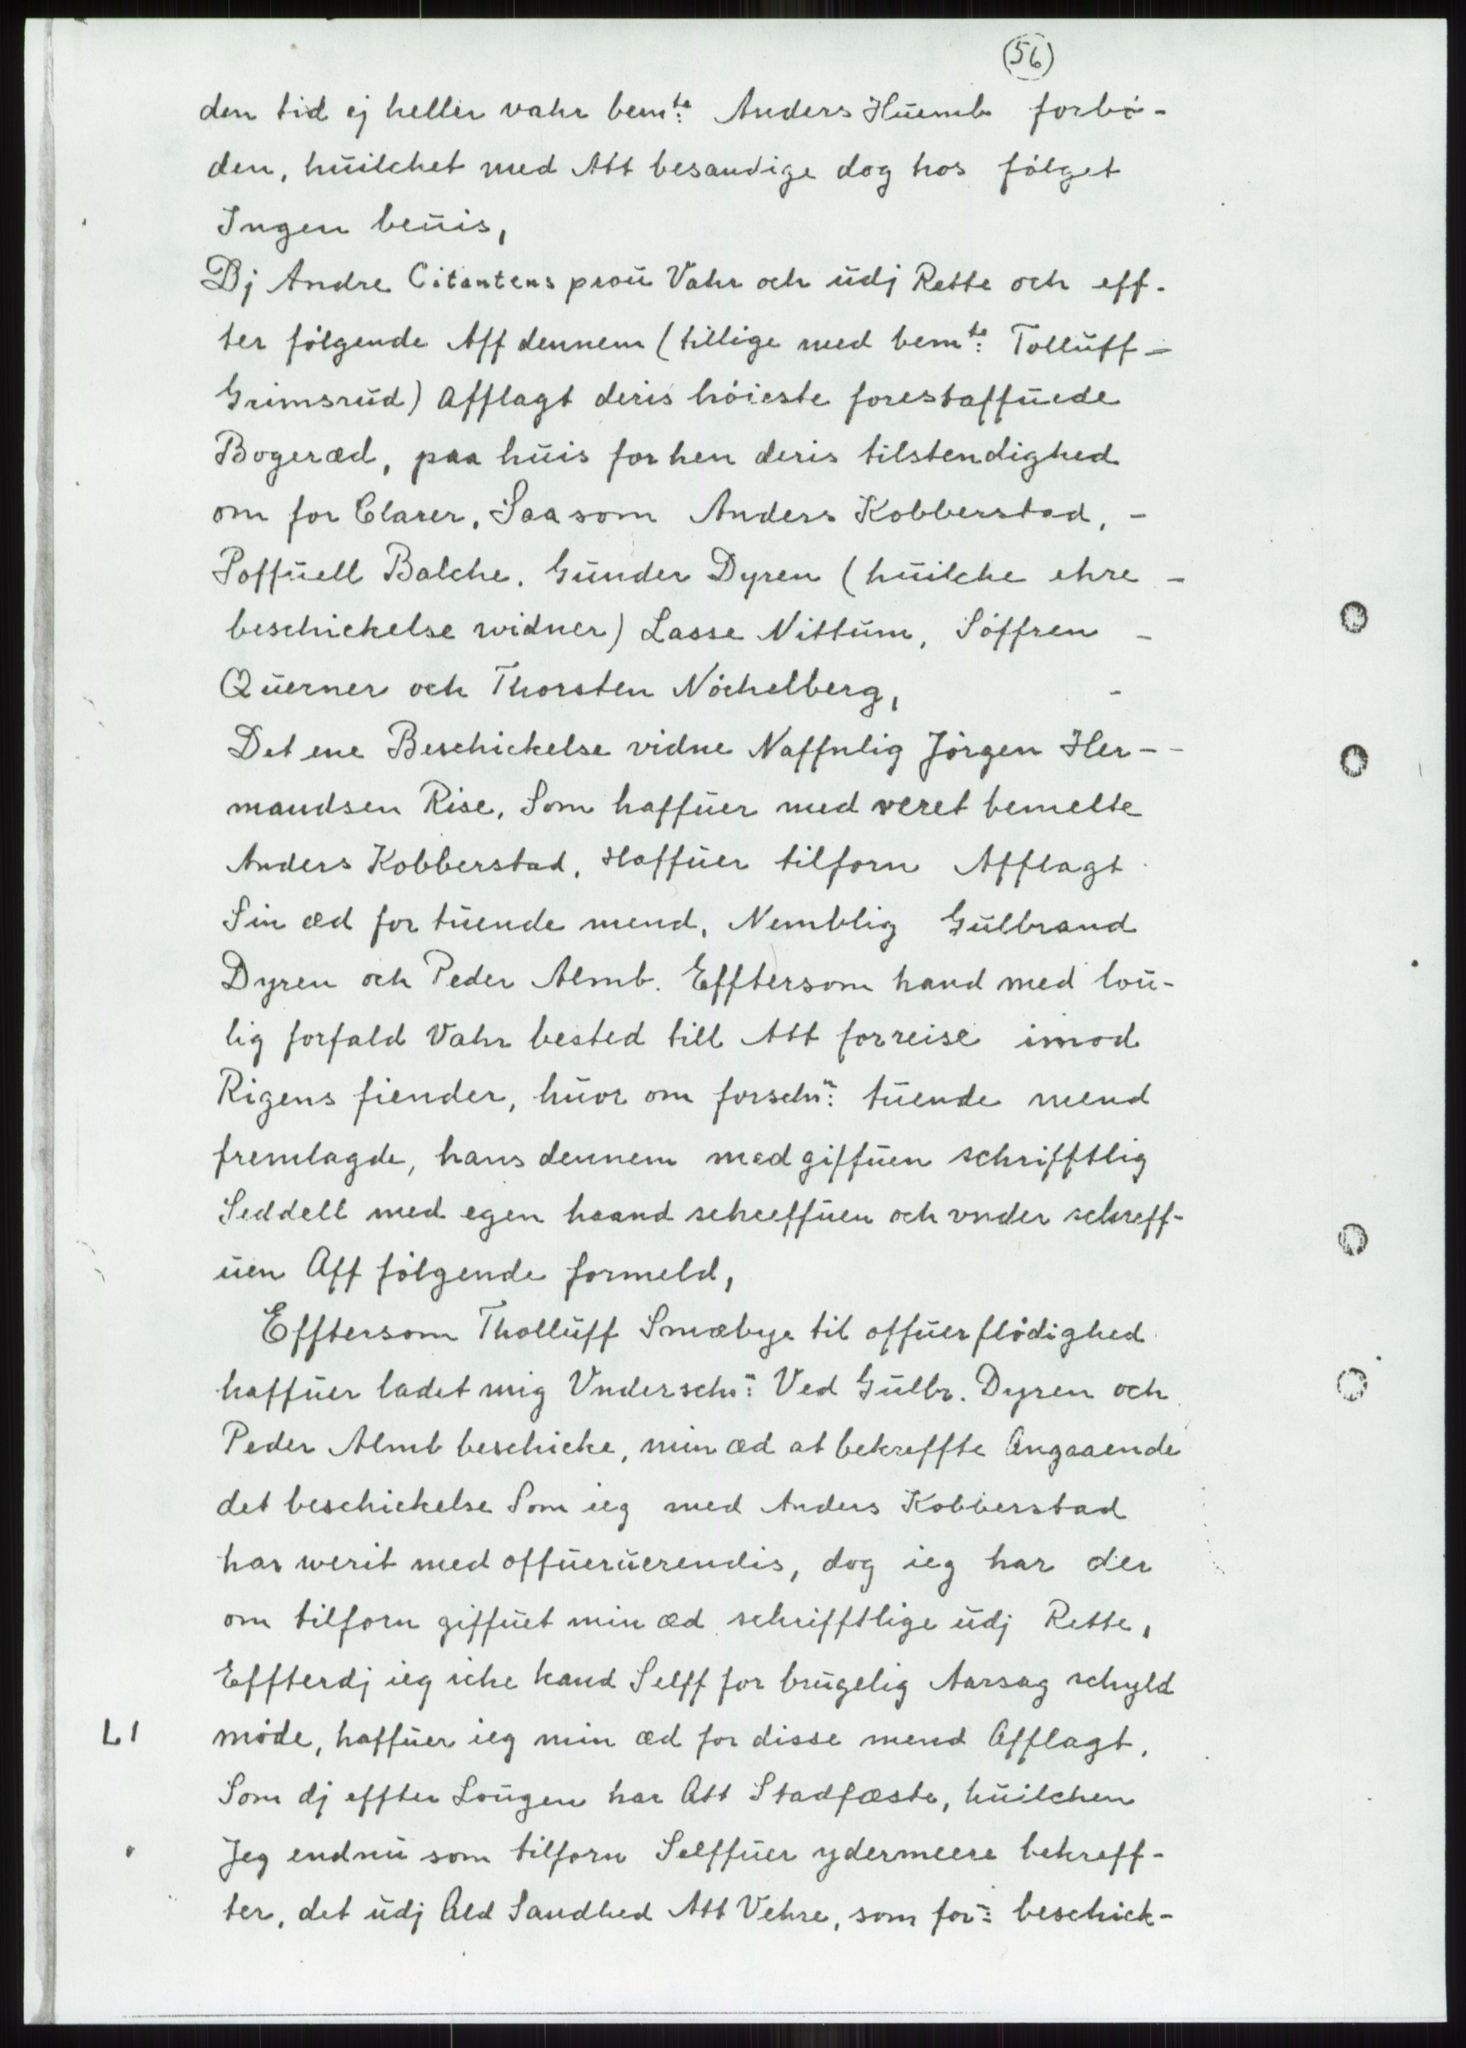 (56)
den tid ej heller vahr bemte: Anders Huemb forbö-
den, huilchet med Att besandige dog hos følget
Ingen beuis,
Dj Andre Citantens prou Vahr och udj Rette och eff-
ter følgende Aff dennem (tillige med bemte: Tolluff-
Grimsrud) Afflagt deris høieste forestaffuede
Bogeræd, paa huis forhen deris tilstendighed
om for Clarer, Saasom Anders Kobberstad, -
Poffuell Balche. Gunder Dyren (huilche ehre -
beschickelse widner) Lasse Nittum, Søffren -
Querner och Thorsten Nöchelberg, -
Det ene Beschickelse vidne Naffnlig Jørgen Her--
mandsen Rise, Som haffuer med veret bemelte
Anders Kobberstad, Haffuer tilforn Afflagt
Sin æd for tuende mend, Nemblig Gulbrand
Dyren och Peder Almb. Efftersom hand med lou-
lig forfald Vahr bested till Att forreise imod
Rigens fiender, huor om forschn: tuende mend
fremlagde, hans dennem medgiffuen schrifftlig
Seddell med egen haand schreffuen och vnder schreff-
uen Aff følgende formeld,
Efftersom Tholluff Smæbye til offuerflödighed
haffuer ladet mig Vnderschn: Ved Gulbr. Dyren och
Peder Almb beschicke, min æd at bekreffte Angaaende
det beschickelse Som ieg med Anders Kobberstad
har werit med offueruerendis, dog ieg har der
om tilforn giffuet min æd schrifftlige udj Rette,
Effterdj ieg iche kand Selff for brugelig Aarsag schyld
L1 møde, haffuer ieg min æd for disse mend Afflagt,
Som dj effter Lougen har Att Stadfæste, huilchen
Jeg endnu som tilforn Selffuer ydermeere bekreff-
ter, det udj Ald Sandhed Att Vehre, som forn: beschick-